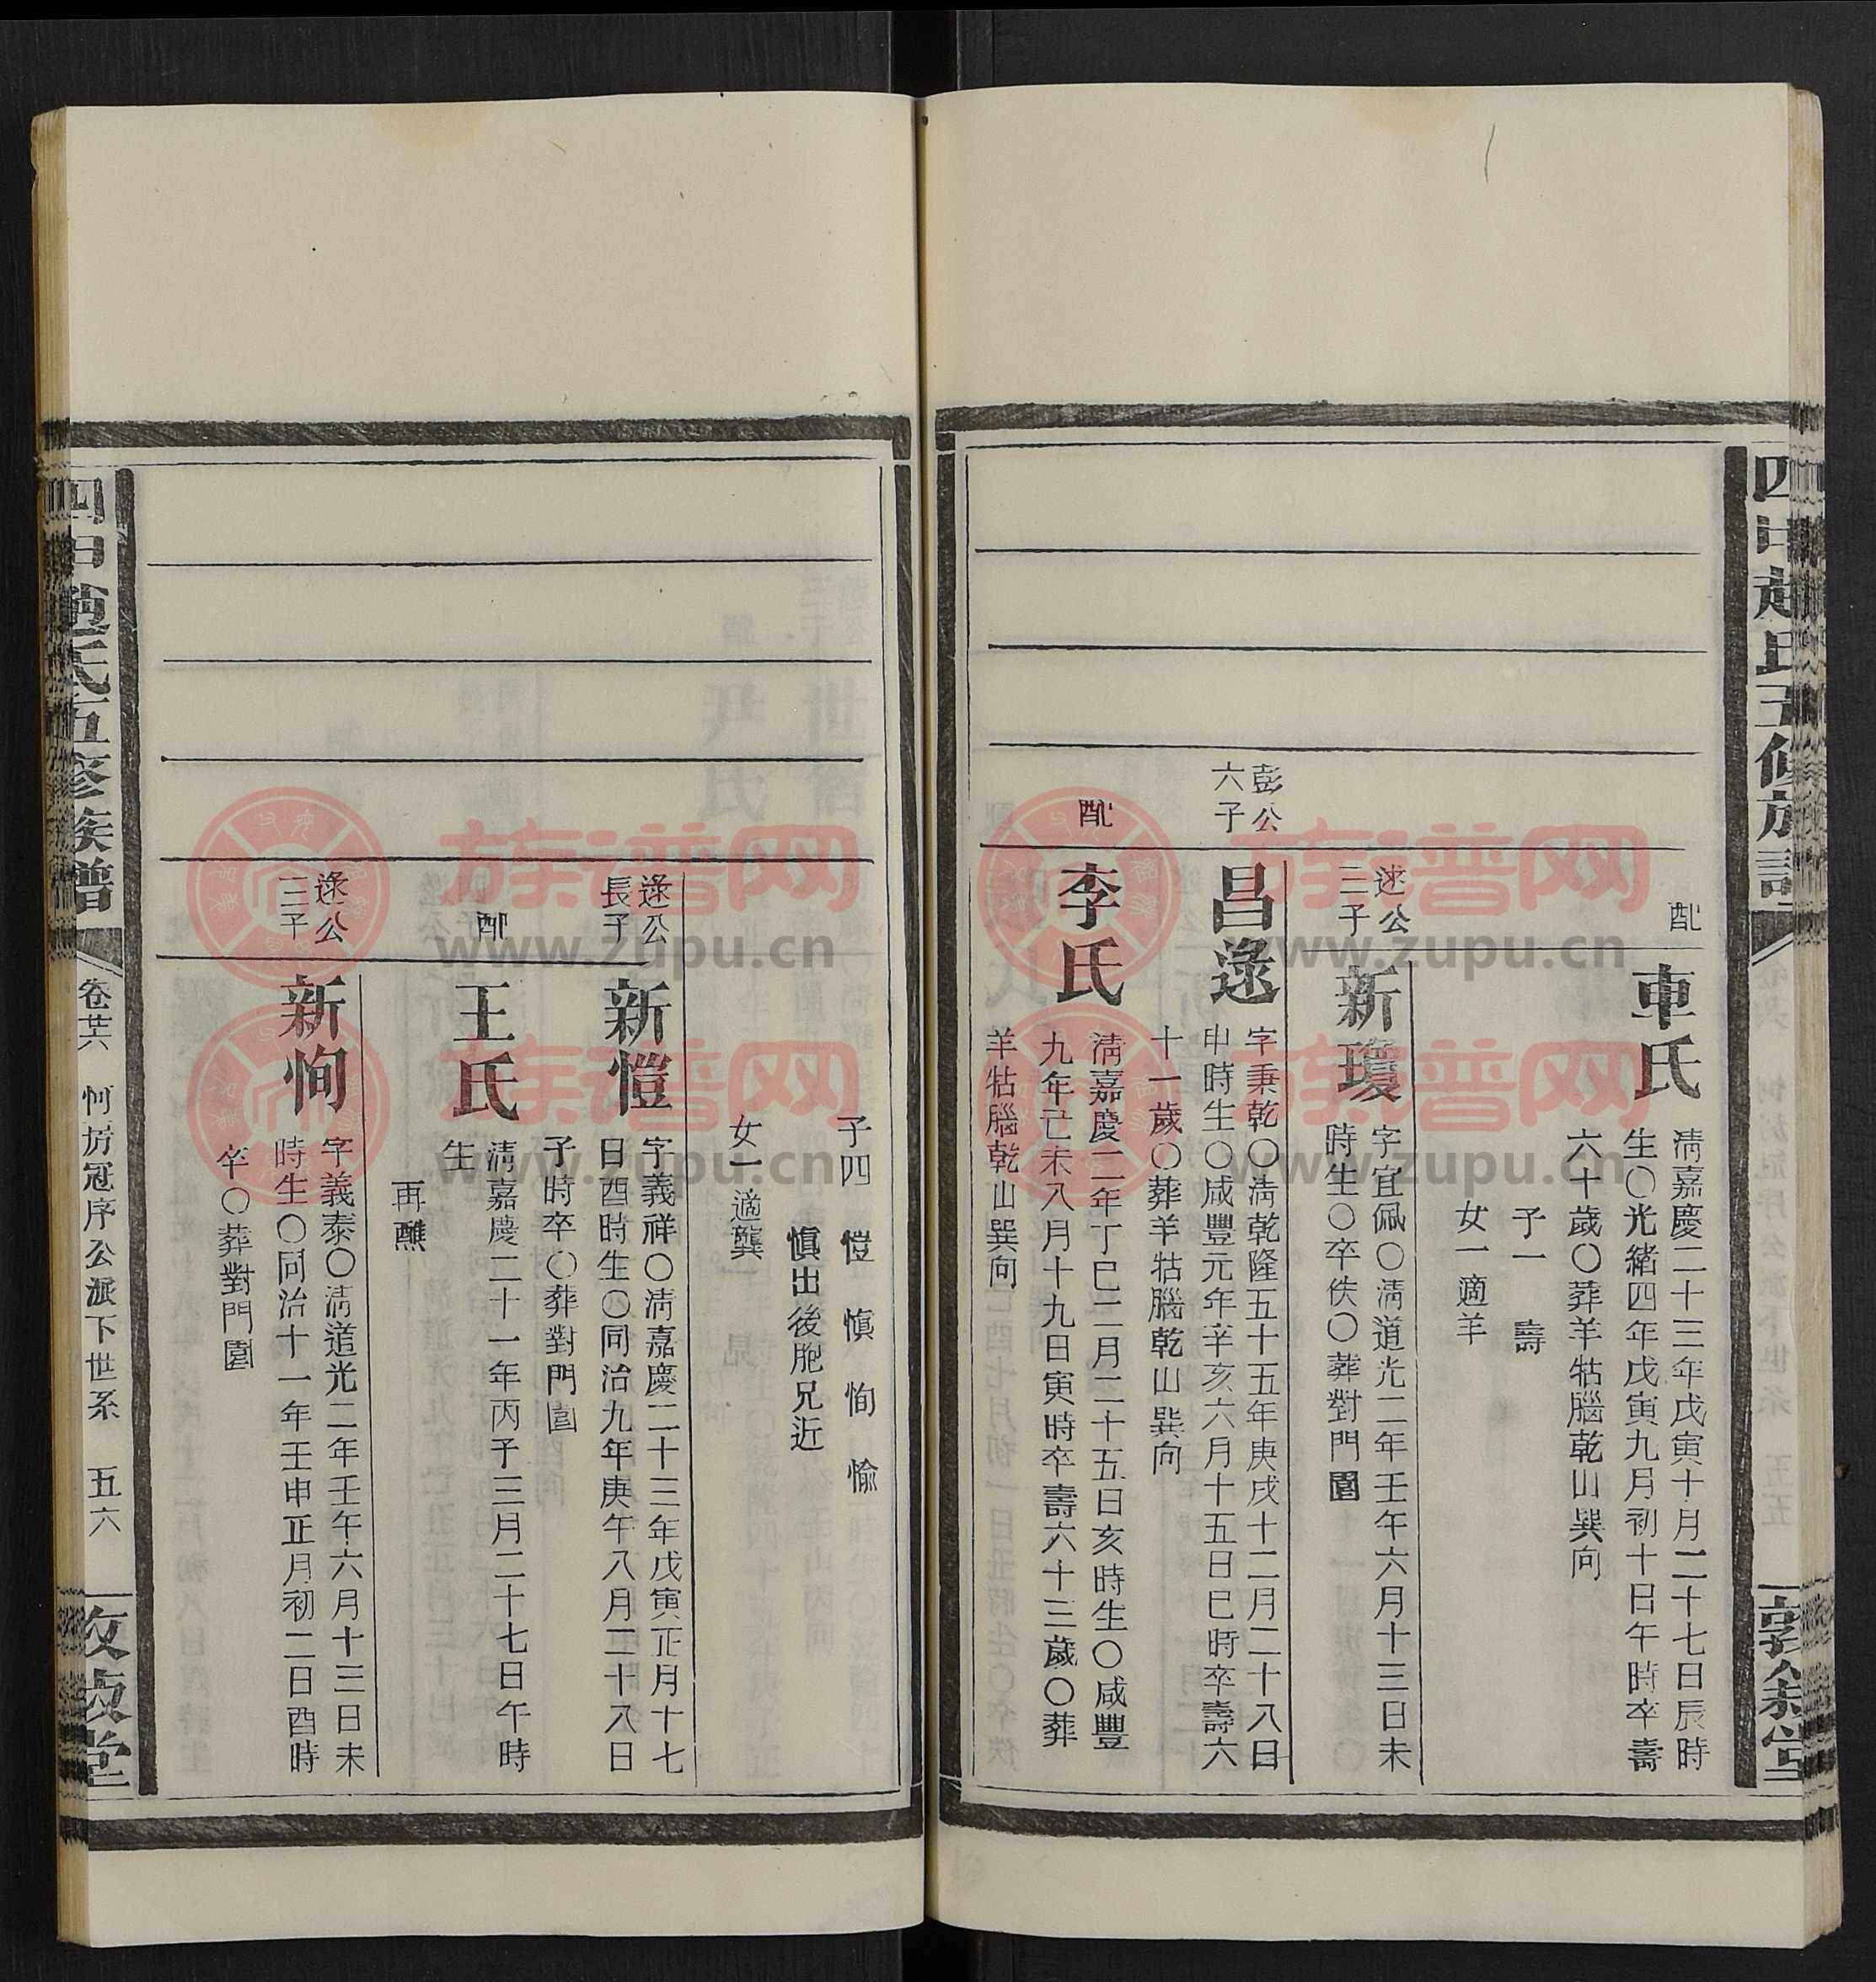 配
車氏
淸嘉慶二十三年戊寅十月二十七日辰時
生〇光緖四年戊寅九月初十日午時卒壽
六十歲〇葬羊牯腦乾山巽向
子一 壽
女一適羊
公
二子
新瓊
字宜佩〇淸道光二年壬午六月十三日未
時生〇卒佚〇葬對門園
彭公
六子
昌逯
字秉乾〇淸乾隆五十五年庚戌十二月二十八日
申時生〇咸豐元年辛亥六月十五日巳時卒壽六
十一歲〇葬羊牯腦乾山巽向
配
李氏
淸嘉慶二年丁巳二月二十五日亥時生〇咸豐
九年己未八月十九日寅時卒壽六十三歲〇葬
羊牯腦乾山巽向
子四 愷 愼 恂 愉
愼出後胞兄近
女一適龔
逯公
長子
新愷
字義祥〇淸嘉慶二十三年戊寅正月十七
日酉時生〇同治九年庚午八月二十八日
子時卒〇葬對門園
配
王氏
淸嘉慶二十一年丙子三月二十七日午時
生
再醮
逯公
三子
新恂
字義泰〇淸道光二年壬午六月十三日未
時生〇同治十一年壬申正月初二日酉時
卒〇葬對門園
四甲趙氏五修族譜
卷廿六
房冠序公派下世系
五六
敦敘堂
族谱网
www.zupu.cn